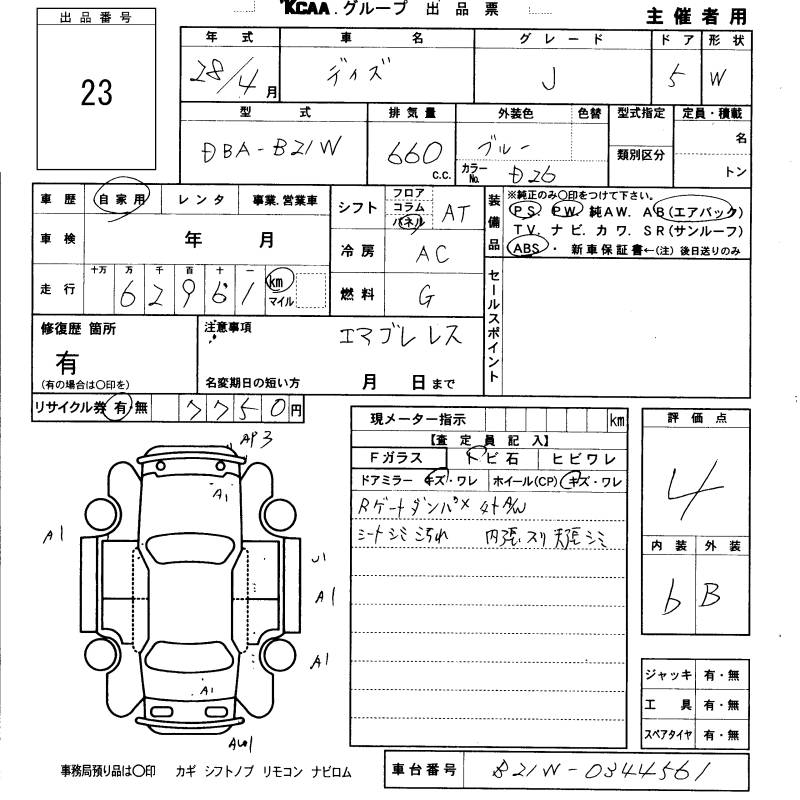 KCAA. グループ 出品票
主催者用
出品番号
23
年式 車名 グレード ドア 形状
28/4月 デイズ J 5 W
型式 排気量 外装色 色替 型式指定 定員・積載
DBA-B21W 660 c.c. ブルー 名
類別区分
カラーNo. D26 トン
車歴 自家用 レンタ 事業.営業車
車検 年 月
走行 十万 万 千 百 十 一
6 2 9 6 1 km マイル
シフト フロア コラム パネル AT
冷房 AC
燃料 G
装備品
※純正のみ〇印をつけて下さい。
PS. PW. 純AW. AB(エアバック)
TV. ナビ. カワ. SR(サンルーフ)
ABS ・ 新車保証書←(注) 後日送りのみ
セールスポイント
修復歴 箇所
有
(有の場合は〇印を)
注意事項
エマブレ レス
名変期日の短い方 月 日まで
リサイクル券 有 無 7 7 5 0 円
現メーター指示 km
【査定員記入】
Fガラス トビ石 ヒビワレ
ドアミラー キズ・ワレ ホイール(CP) キズ・ワレ
Rゲートダンパ× 社外A/W
シートシミ 汚れ 内張スリ 天張シミ
評価点
4
内装 外装
b B
AP3
A1
A1
U1
A1
A1
A1
ジャッキ 有・無
工具 有・無
スペアタイヤ 有・無
事務局預り品は〇印 カギ シフトノブ リモコン ナビロム
車台番号 B21W-0344561